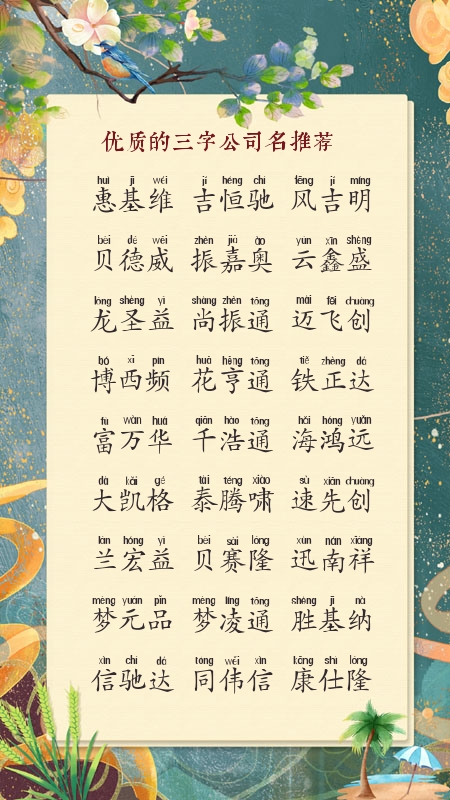 优质的三字公司名推荐
huì jī wéi jí héng chí fēng jí míng
惠基维 吉恒驰 风吉明
bèi dé wēi zhèn jiā ào yún xīn shèng
贝德威 振嘉奥 云鑫盛
lóng shèng yì shàng zhèn tōng mài fēi chuàng
龙圣益 尚振通 迈飞创
bó xī pín huā hēng tōng tiě zhèng dá
博西频 花亨通 铁正达
fù wàn huá qiān hào tōng hǎi hóng yuǎn
富万华 千浩通 海鸿远
dà kǎi gé tài téng xiào sù xiān chuàng
大凯格 泰腾啸 速先创
lán hóng yì bèi sài lóng xùn nán xiáng
兰宏益 贝赛隆 迅南祥
mèng yuán pǐn mèng líng tōng shèng jī nà
梦元品 梦凌通 胜基纳
xìn chí dá tóng wěi xìn kāng shì lóng
信驰达 同伟信 康仕隆